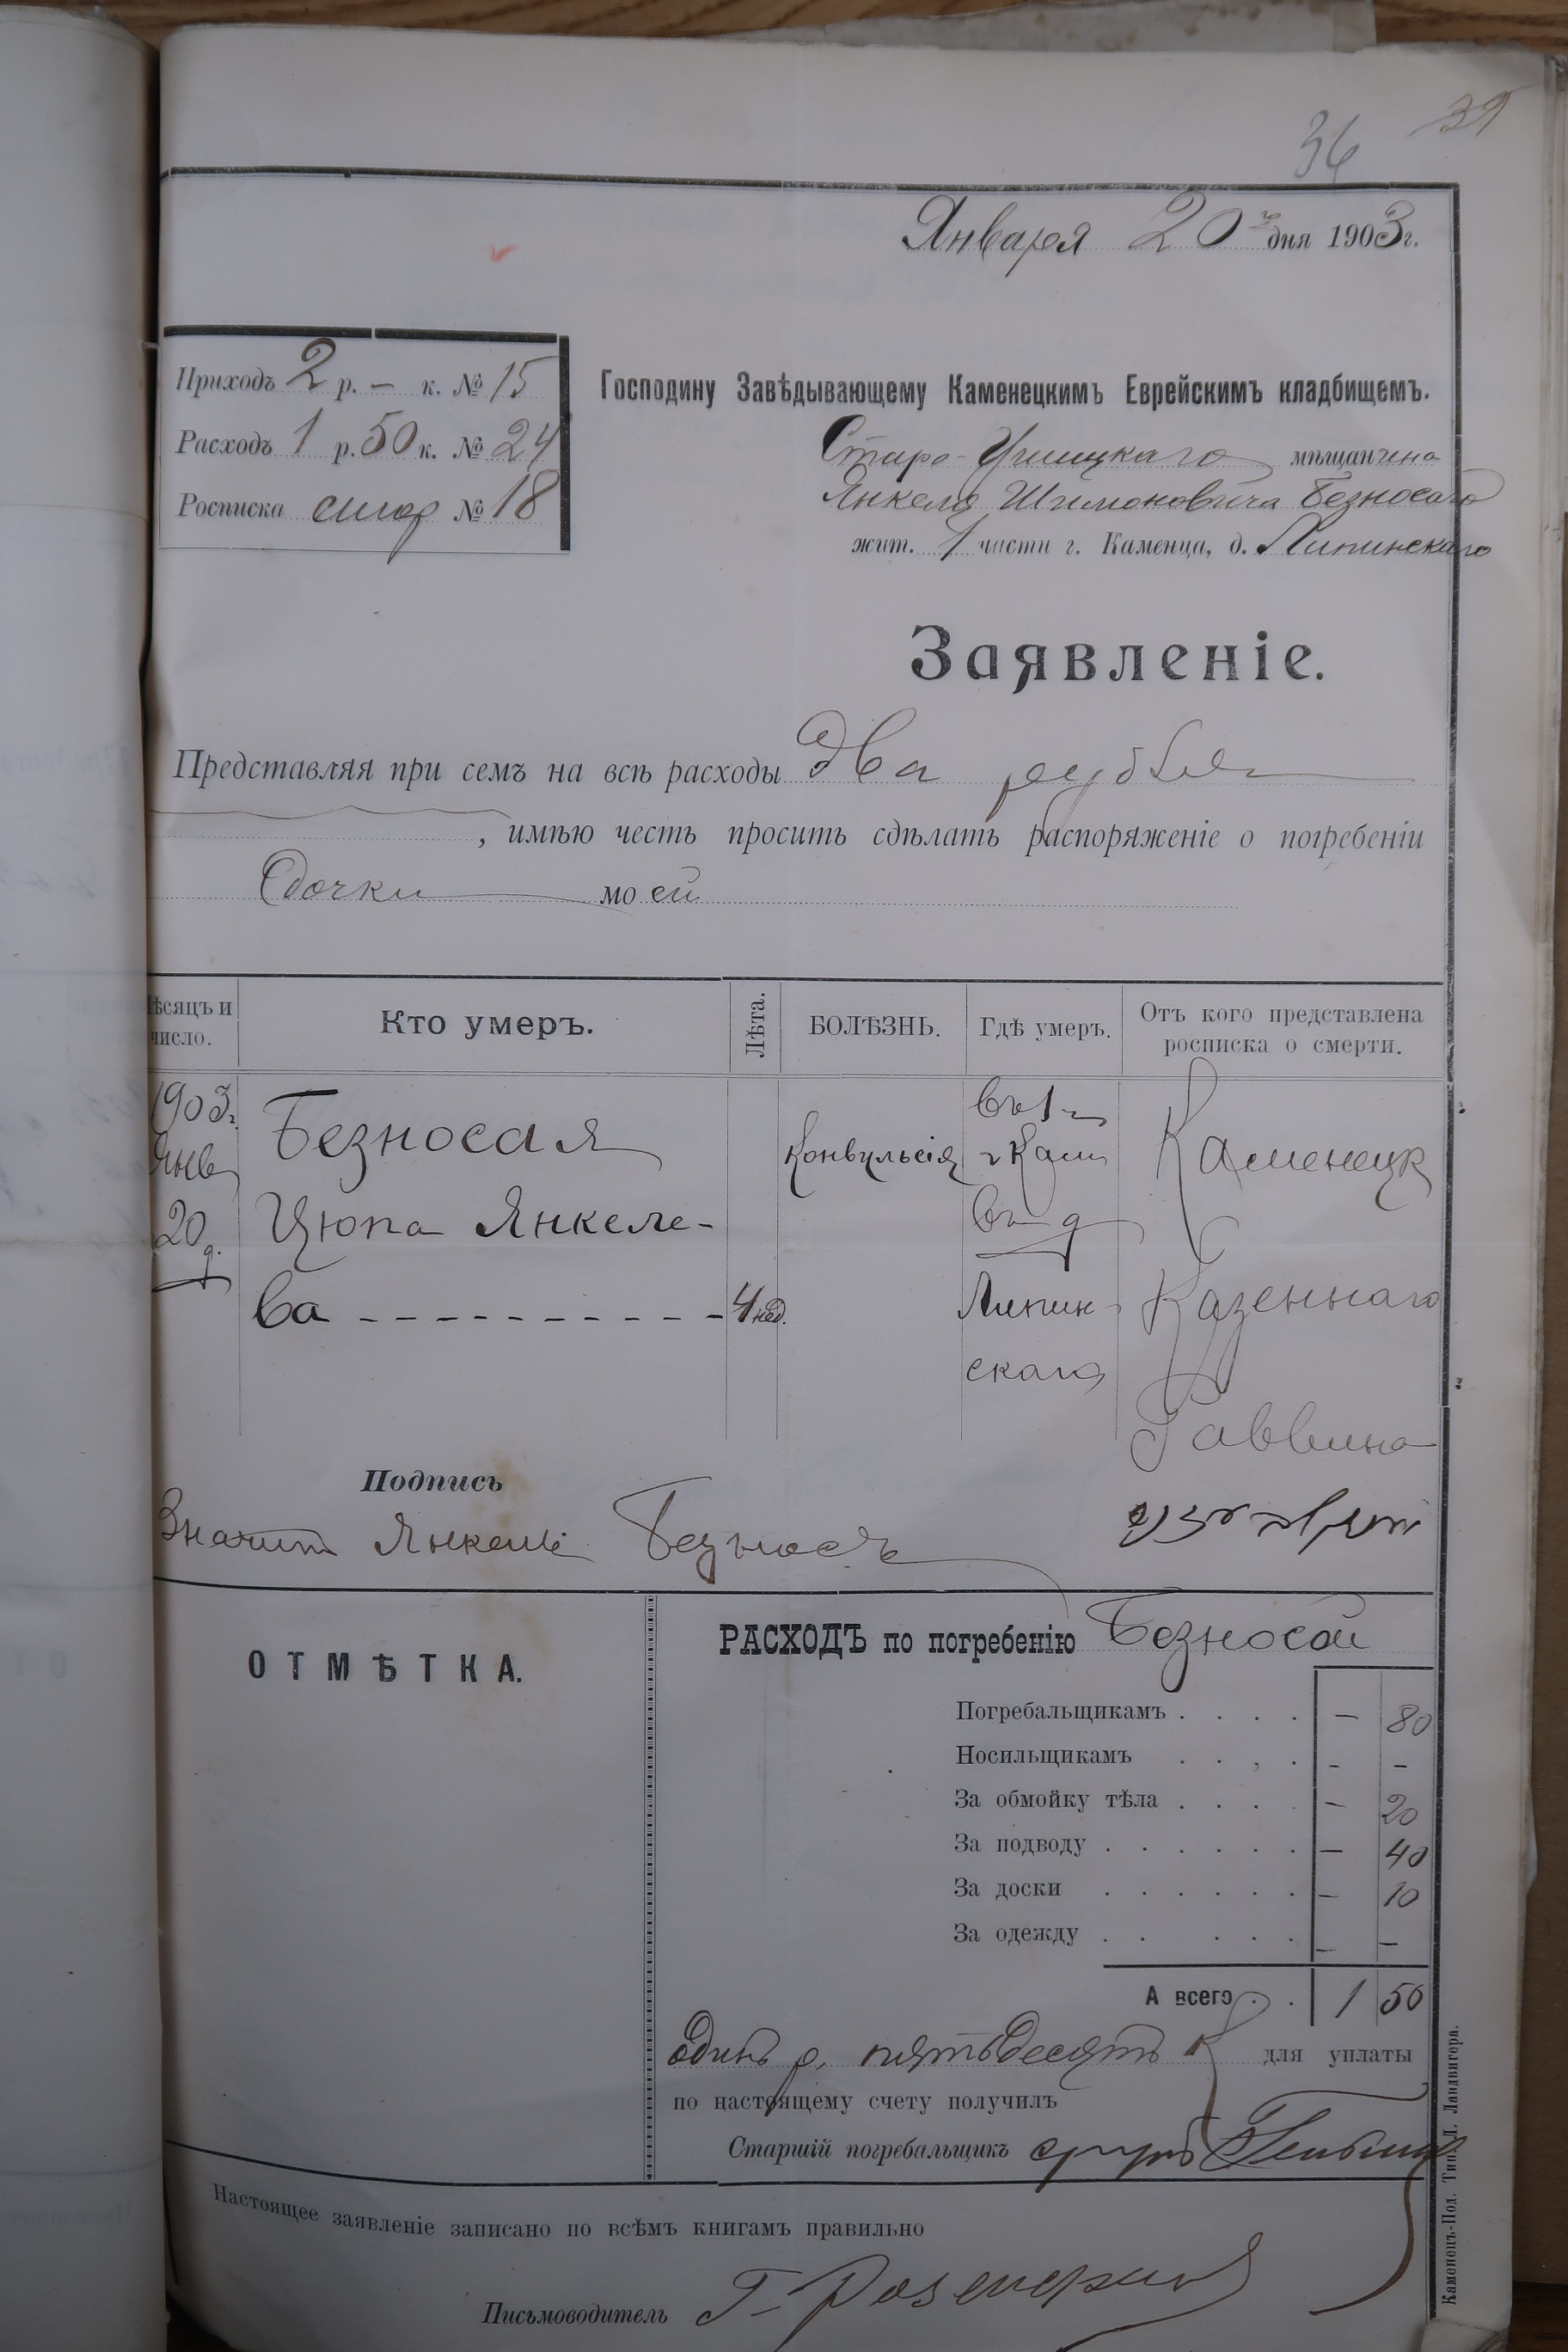 36 39
Января 20 дня 1903 г.
Приходъ 2 р. – к. № 15
Расходъ 1 р. 50 к. № 24
Росписка смер № 18
Господину Завѣдывающему Каменецкимъ Еврейскимъ кладбищемъ.
Старо-Ушицкаго мѣщанина
Янкеля Шимоновича Безносаго
жит. 1 части г. Каменца, д. Липинскаго
Заявленіе.
Представляя при семъ на всѣ расходы два рубля
, имѣю честь просить сдѣлать распоряженіе о погребеніи
дочки моей
Мѣсяцъ и число. Кто умеръ. Лѣта. БОЛѢЗНЬ. Гдѣ умеръ. Отъ кого представлена росписка о смерти.
1903 г. Янв 20 д.
Безносая
Цюпа Янкеле-
ва - - - - - - - - - - -
4 нед.
Конвульсія
въ 1 ч
г Кам
въ д
Липин
скаго
Каменецк
Казеннаго
Раввина
Подпись
Значит Янкель Безносъ
ОТМѢТКА.
РАСХОДЪ по погребенію Безносой
Погребальщикамъ . . . . – 80
Носильщикамъ . . , . - -
За обмойку тѣла . . . . – 20
За подводу . . . . . . – 40
За доски . . . . . . – 10
За одежду . . . . . – –
А всего . . 1 50
Одинъ р. пятьдесятъ к для уплаты
по настоящему счету получилъ
Старшій погребальщикъ
Настоящее заявленіе записано по всѣмъ книгамъ правильно
Письмоводитель Г.
Каменецъ-Под. Тип. Л. Ландвигера.